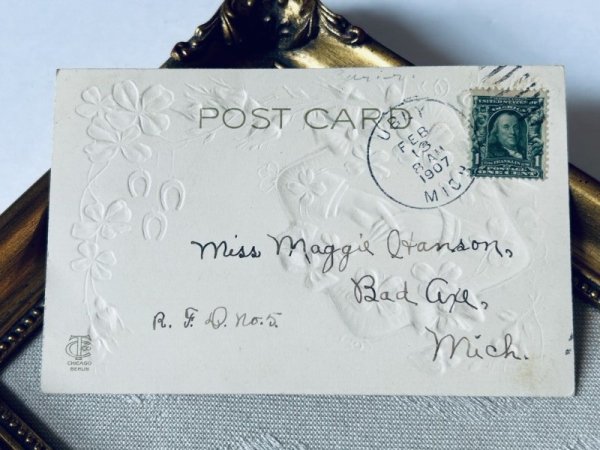 POST CARD
UBLY
FEB
13
8 AM
1907
MICH
UNITED STATES OF AMERICA
POSTAGE
ONE CENT
Miss Maggie Hanson,
Bad Axe,
R. F. D. No. 5
Mich.
CHICAGO
BERLIN